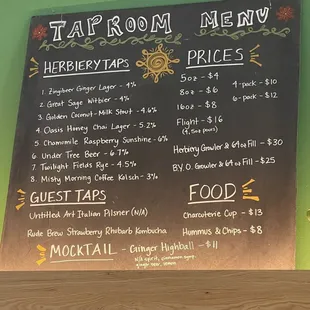 TAPROOM MENU
HERBIERY TAPS
1. Zingibeer Ginger Lager - 4%
2. Great Sage Witbier - 4%
3. Golden Coconut - Milk Stout - 4.6%
4. Oasis Honey Chai Lager - 5.2%
5. Chamomile Raspberry Sunshine - 6%
6. Under Tree Beer - 6.7%
7. Twilight Fields Rye - 4.5%
8. Misty Morning Coffee Kolsch - 3%
PRICES
5oz - $4
8oz - $6
16oz - $8
Flight - $16
(4, 5oz pours)
4-pack - $10
6-pack - $12
Herbiery Growler & 64oz Fill - $30
B.Y.O. Growler & 64oz Fill - $25
GUEST TAPS
Untitled Art Italian Pilsner (N/A)
Rude Brew Strawberry Rhubarb Kombucha
FOOD
Charcuterie Cup - $13
Hummus & Chips - $8
MOCKTAIL - Ginger Highball - $11
N/A spirit, cinnamon syrup,
ginger beer, lemon